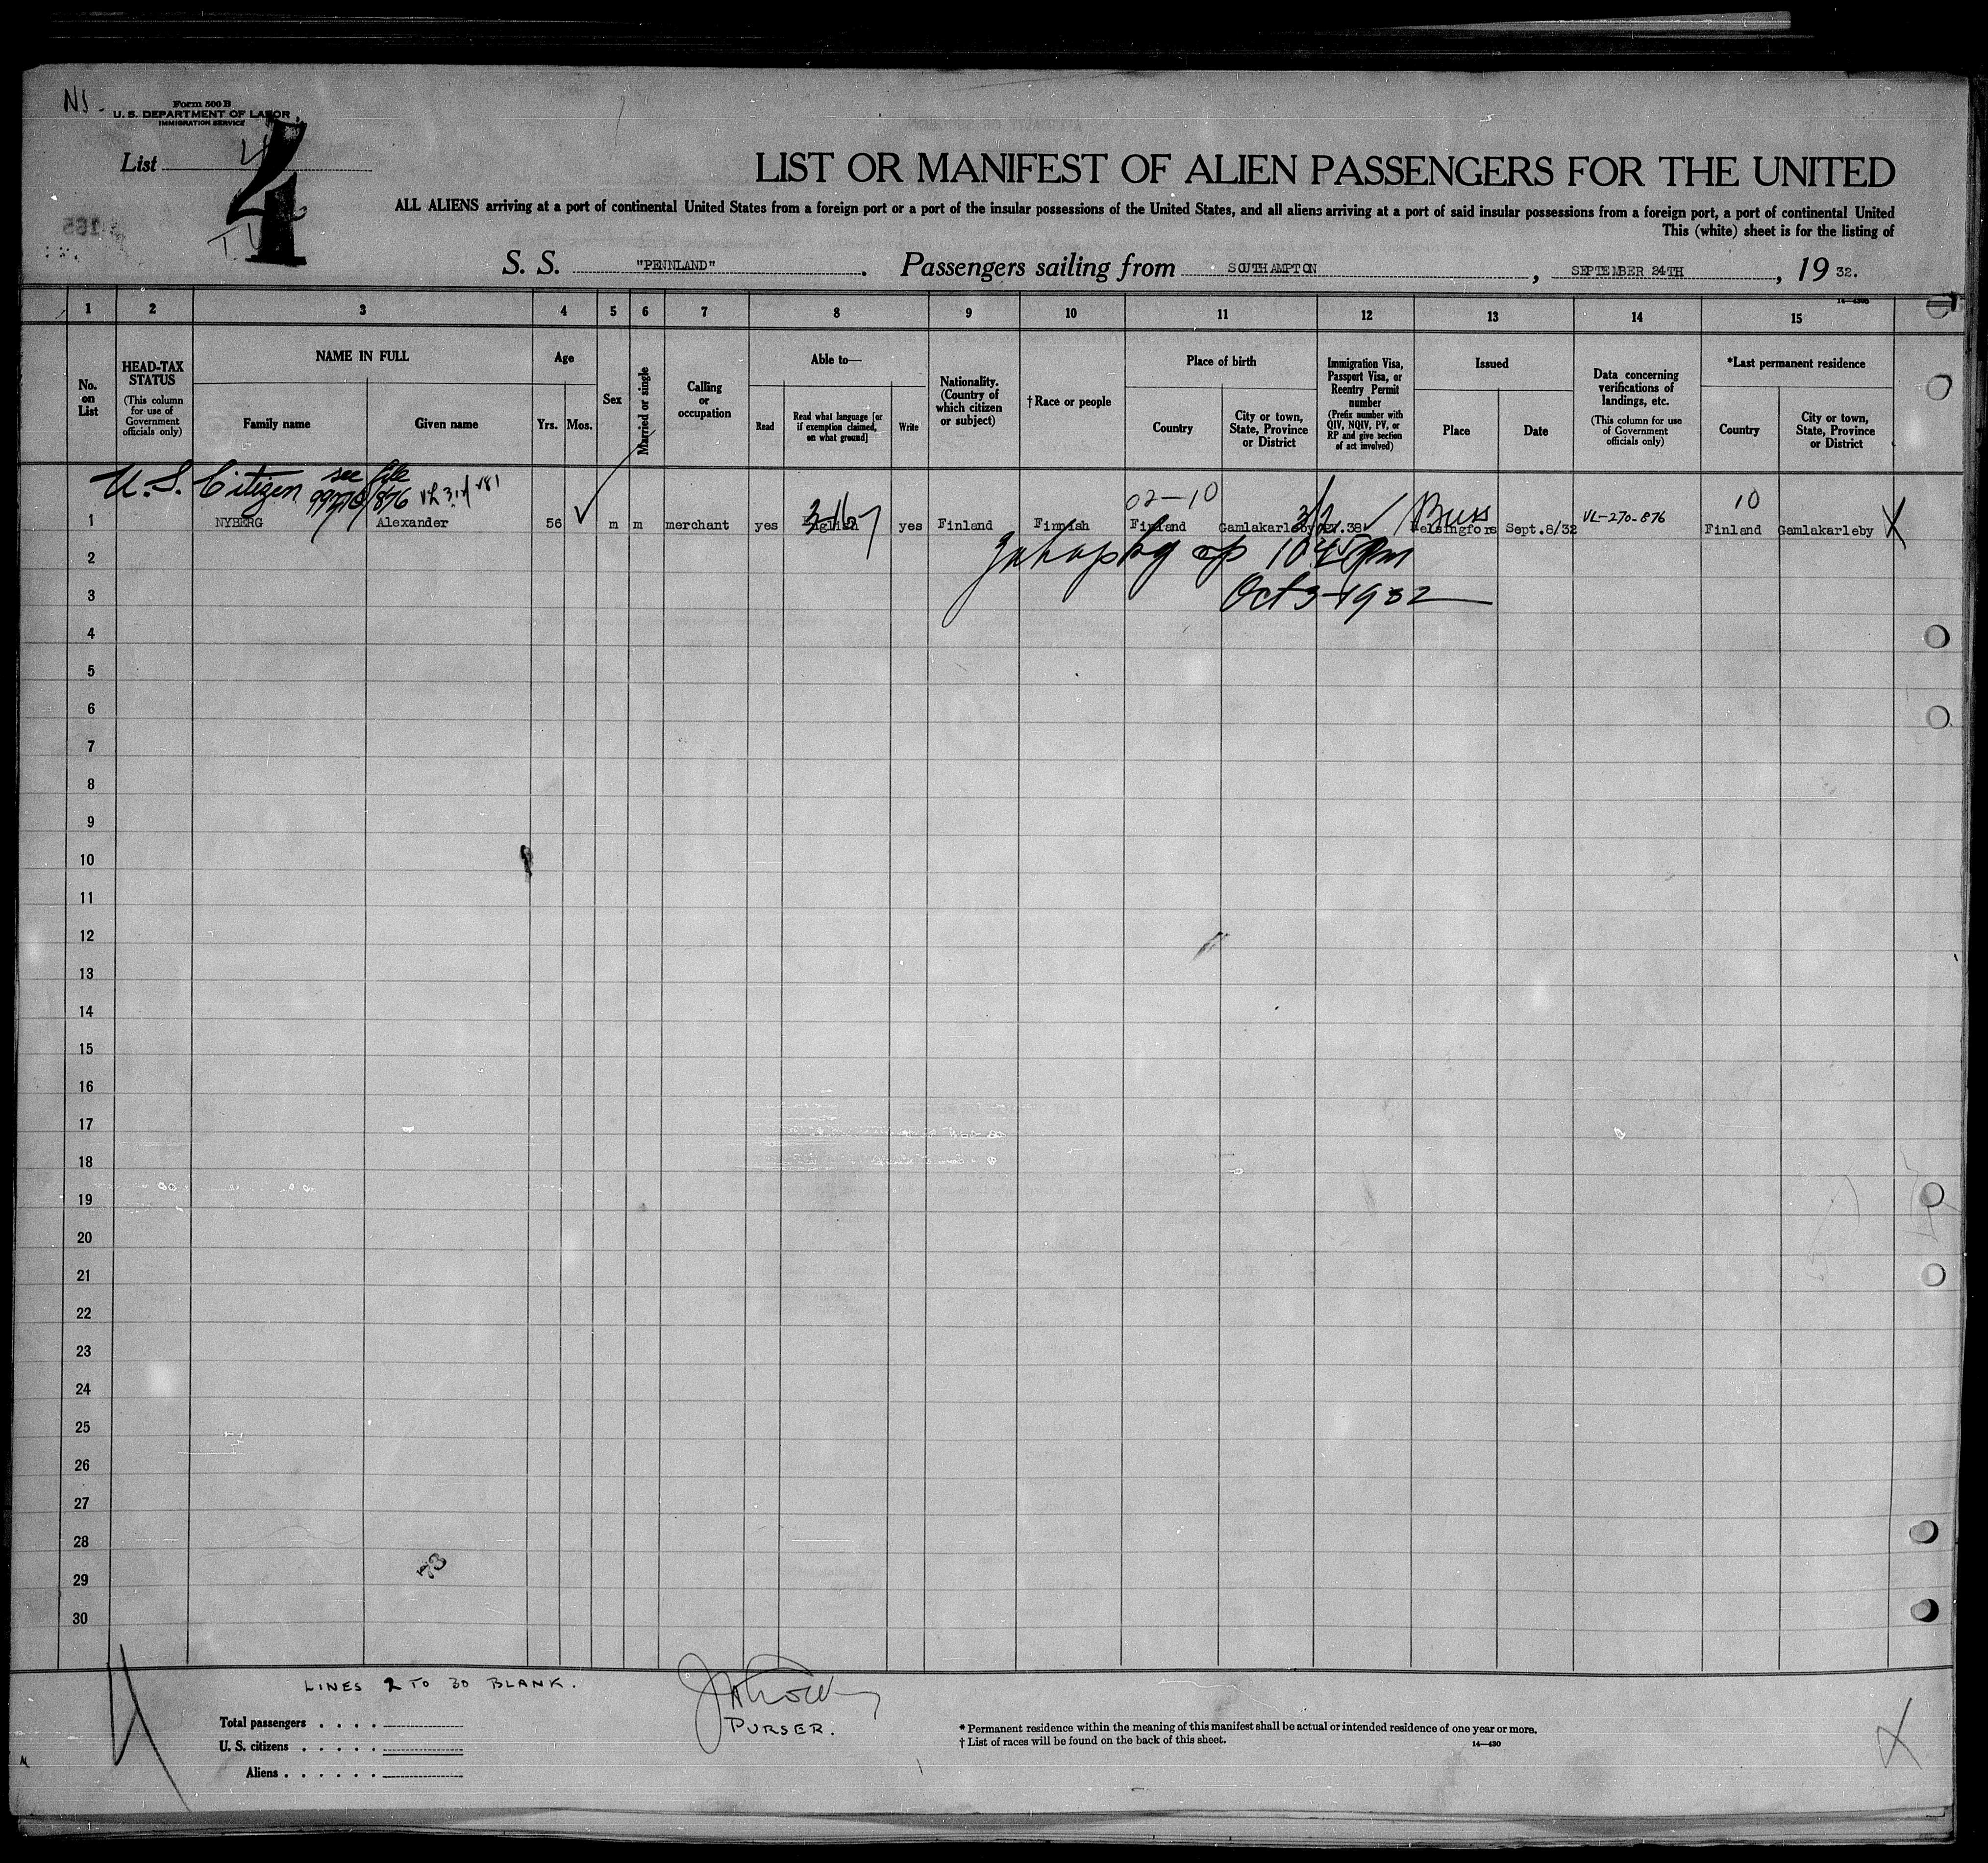 NJ-
Form 500 B
U. S. DEPARTMENT OF LABOR
IMMIGRATION SERVICE
List 4
4
LIST OR MANIFEST OF ALIEN PASSENGERS FOR THE UNITED
ALL ALIENS arriving at a port of continental United States from a foreign port or a port of the insular possessions of the United States, and all aliens arriving at a port of said insular possessions from a foreign port, a port of continental United
This (white) sheet is for the listing of
S. S. "PENNLAND". Passengers sailing from SOUTHAMPTON, SEPTEMBER 24TH, 19 32.
1 2 3 4 5 6 7 8 9 10 11 12 13 14 15
No. on List
HEAD-TAX STATUS
(This column for use of Government officials only)
NAME IN FULL
Family name
Given name
Age
Yrs. Mos.
Sex
Married or single
Calling or occupation
Able to—
Read
Read what language [or if exemption claimed, on what ground]
Write
Nationality. (Country of which citizen or subject)
† Race or people
Place of birth
Country
City or town, State, Province or District
Immigration Visa, Passport Visa, or Reentry Permit number
(Prefix number with QIV, NQIV, PV, or RP and give section of act involved)
Issued
Place
Date
Data concerning verifications of landings, etc.
(This column for use of Government officials only)
*Last permanent residence
Country
City or town, State, Province or District
U.S. Citizen see file
02-10
10
1 NYBERG Alexander 56 m m merchant yes English yes Finland Finnish Finland Gamlakarleby Helsingfors Sept.8/32 VL-270-876 Finland Gamlakarleby X
2
Oct 3-1932
3
4
5
6
7
8
9
10
11
12
13
14
15
16
17
18
19
20
21
22
23
24
25
26
27
28
73
29
30
LINES 2 TO 30 BLANK.
PURSER.
Total passengers . . . .
U. S. citizens . . . . .
Aliens . . . . . .
* Permanent residence within the meaning of this manifest shall be actual or intended residence of one year or more.
† List of races will be found on the back of this sheet.
14—430